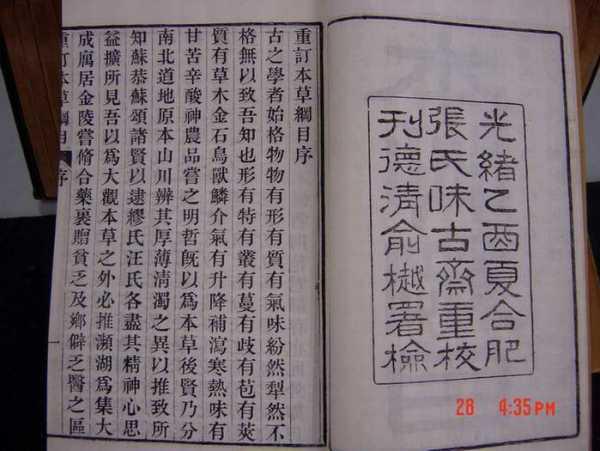 光緒乙酉夏合肥
張氏味古齋重校
刋德清俞樾署檢
重訂本草綱目序
古之學者始格物物有形有質有氣味紛然犁然不
格無以致吾知也形有特有叢有蔓有歧有苞有莢
質有草木金石鳥獸鱗介氣有升降補瀉寒熱味有
甘苦辛酸神農品嘗之明哲旣以爲本草後賢乃分
南北道地原本山川辨其厚薄清濁之異以推致所
知蘇恭蘇頌諸賢以逮繆氏汪氏各盡其精神心思
益擴所見吾以爲大觀本草之外必推瀕湖爲集大
成居金陵嘗脩合藥裹贈貧乏及鄉僻乏醫之區
重訂本草綱目 序
一
28 4:35 PM